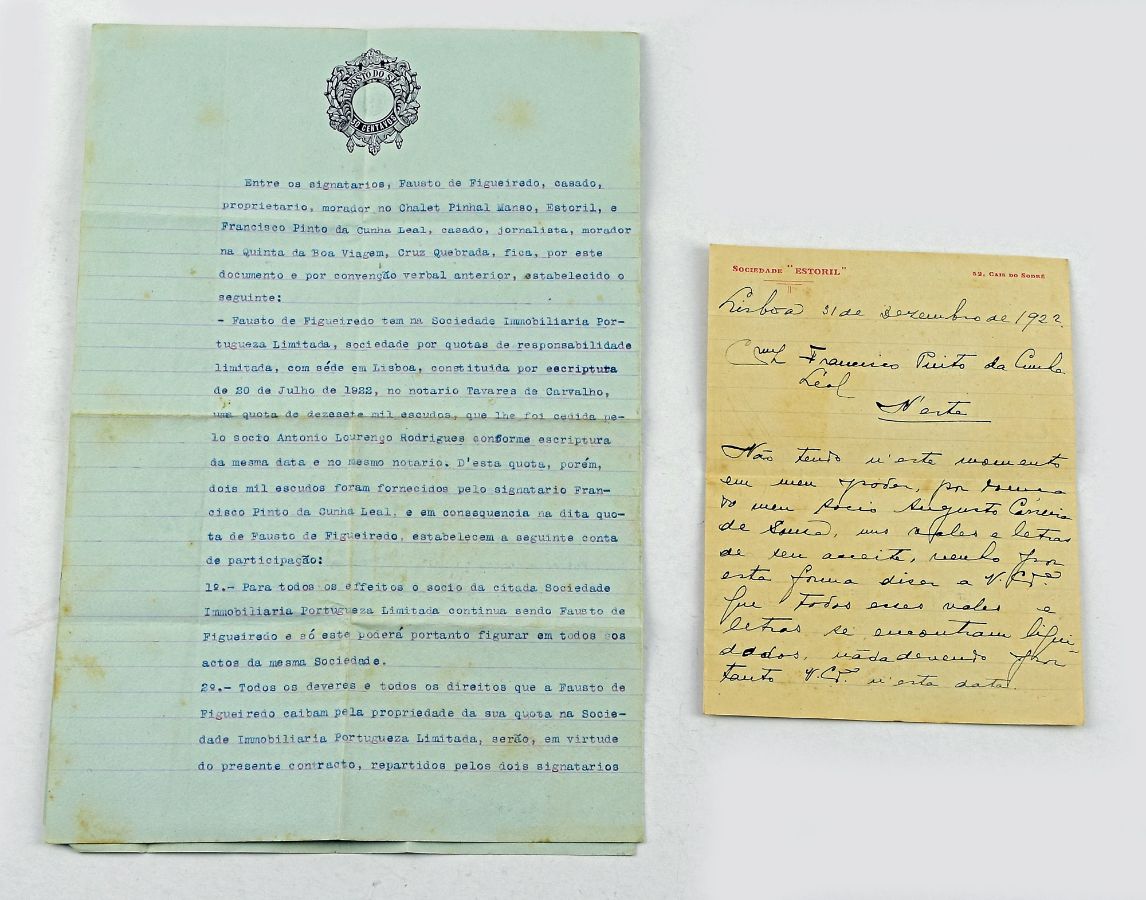 IMPOSTO DO SELO
10 CENTAVOS
Entre os signatarios, Fausto de Figueiredo, casado,
proprietario, morador no Chalet Pinhal Manso, Estoril, e
Francisco Pinto da Cunha Leal, casado, jornalista, morador
na Quinta da Boa Viagem, Cruz Quebrada, fica, por este
documento e por convenção verbal anterior, estabelecido o
seguinte:
- Fausto de Figueiredo tem na Sociedade Immobiliaria Por-
tugueza Limitada, sociedade por quotas de responsabilidade
limitada, com séde em Lisboa, constituida por escriptura
de 20 de Julho de 1922, no notario Tavares de Carvalho,
uma quota de dezesete mil escudos, que lhe foi cedida pe-
lo socio Antonio Lourenço Rodrigues conforme escriptura
da mesma data e no mesmo notario. D'esta quota, porém,
dois mil escudos foram fornecidos pelo signatario Fran-
cisco Pinto da Cunha Leal, e em consequencia na dita quo-
ta de Fausto de Figueiredo, estabelecem a seguinte conta
de participação:
1º.- Para todos os effeitos o socio da citada Sociedade
Immobiliaria Portugueza Limitada continua sendo Fausto de
Figueiredo e só este poderá portanto figurar em todos os
actos da mesma Sociedade.
2º.- Todos os deveres e todos os direitos que a Fausto de
Figueiredo caibam pela propriedade da sua quota na Socie-
dade Immobiliaria Portugueza Limitada, serão, em virtude
do presente contracto, repartidos pelos dois signatarios
SOCIEDADE "ESTORIL"
52, CAIS DO SODRÉ
Lisboa 31 de Dezembro de 1922.
Francisco Pinto da Cunha
Leal
N'esta
Não tendo n'este momento
em meu poder, por
do meu socio Augusto Carreira
de Sousa, uns vales e letras
de seu acceite, venho por
esta forma dizer a V. Exª
que todos esses vales e
letras se encontram liqui-
dados, nada devendo por
tanto V. Exª n'esta data.